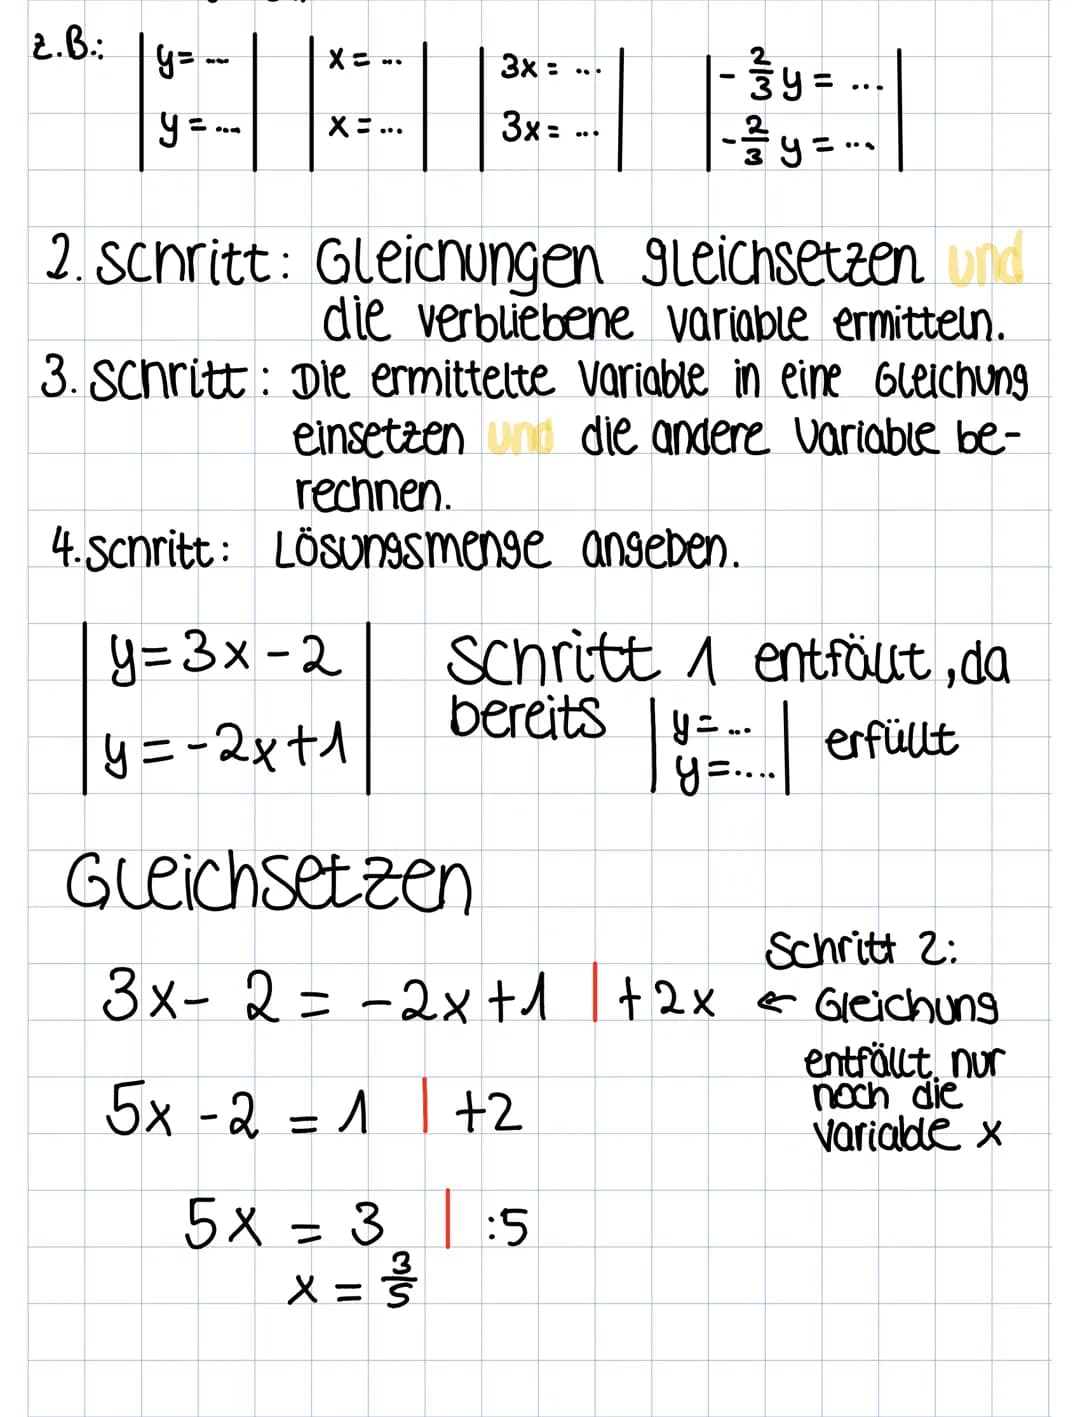 z.B.: | y= ... | | x = ... | | 3x = ... | | -2/3 y = ... |
| y = ... | | x = ... | | 3x = ... | | -2/3 y = ... |
2. Schritt: Gleichungen gleichsetzen und
die verbliebene Variable ermitteln.
3. Schritt: Die ermittelte Variable in eine Gleichung
einsetzen und die andere Variable be-
rechnen.
4. Schritt: Lösungsmenge angeben.
| y=3x-2 | Schritt 1 entfällt, da
bereits | y= ... |
| y=-2x+1 | | y=.... | erfüllt
Gleichsetzen
Schritt 2:
3x- 2 = -2x+1 | +2x ← Gleichung
entfällt, nur
noch die
5x -2 = 1 | +2
Variable x
5x = 3 | :5
x = 3/5